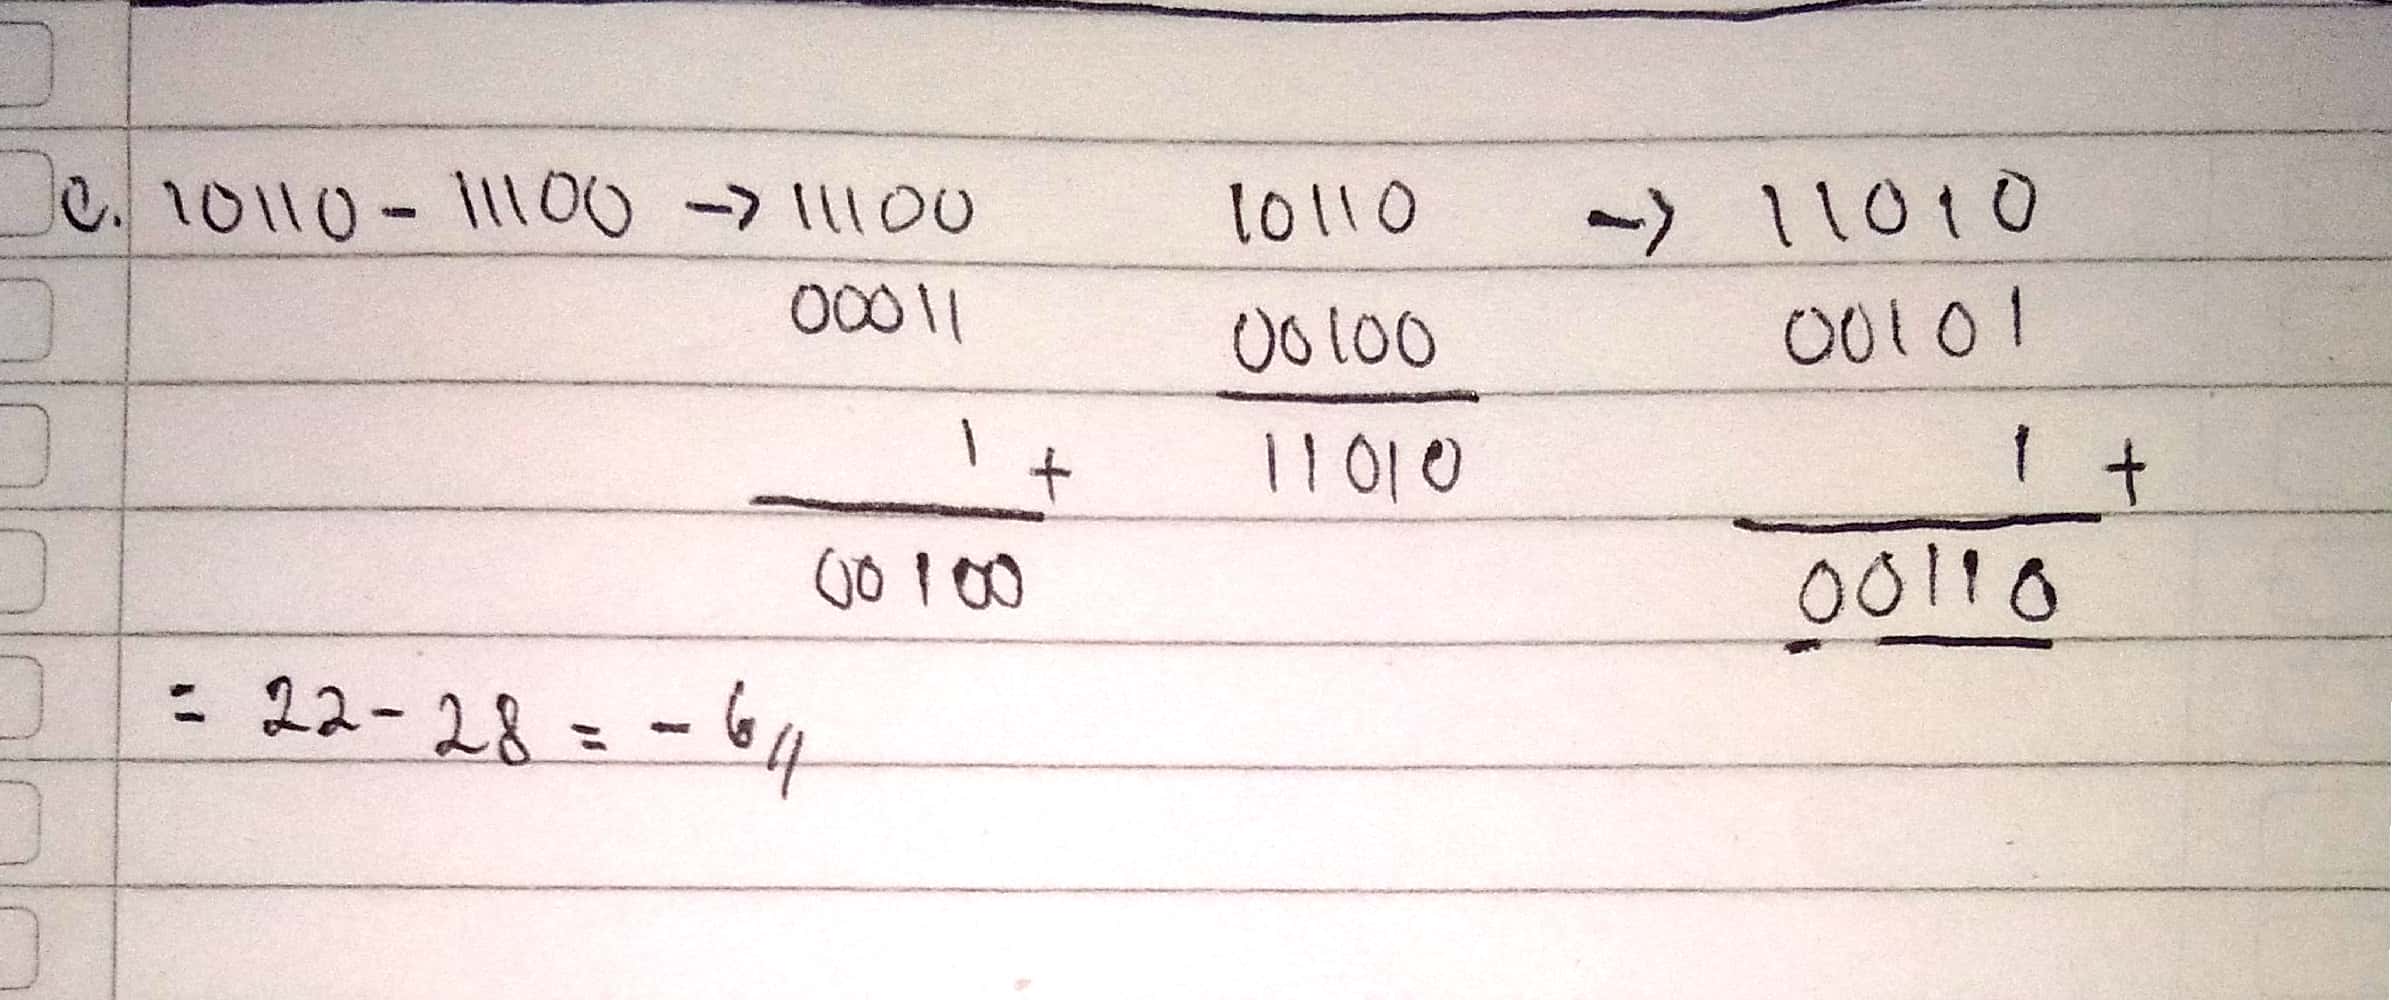 c. 10110 - 11100 -> 11100 10110 -> 11010
00011 00100 00101
1 + 11010 1 +
00100 00110
= 22 - 28 = - 6 //